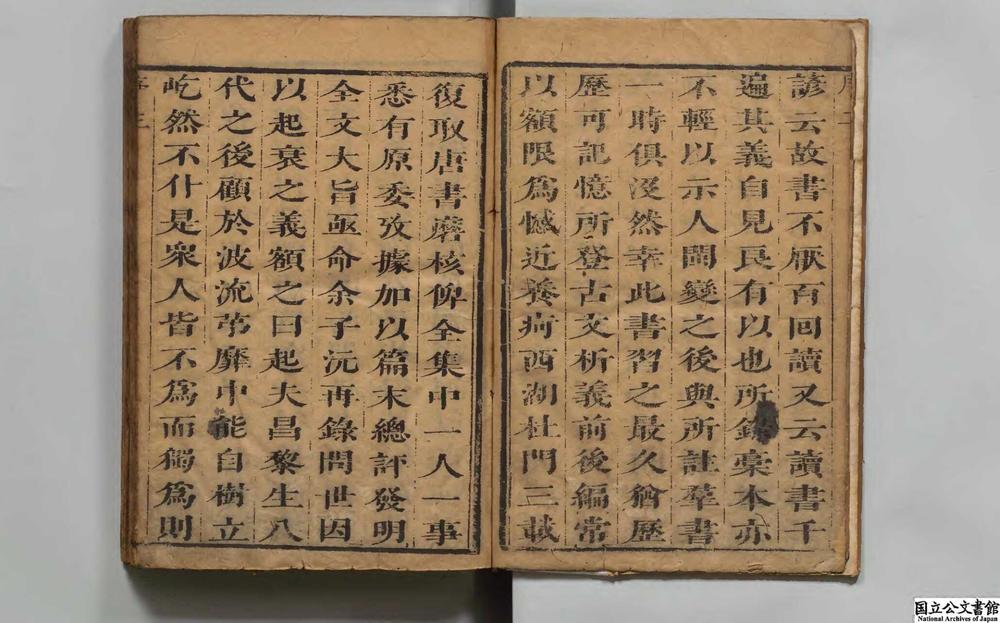 諺云故書不厭百回讀又云讀書千
遍其義自見良有以也所錄槀本亦
不輕以示人閩變之後與所註羣書
一時俱沒然幸此書習之最久猶歷
歷可記憶所登古文析義前後編常
以額限爲憾近養疴西湖杜門三載
復取唐書磨核俾全集中一人一事
悉有原委攷據加以篇末總評發明
全文大旨亟命余子沅再錄問世因
以起衰之義額之曰起夫昌黎生八
代之後顧於波流茅靡中能自樹立
屹然不什是衆人皆不爲而獨爲則
国立公文書館
National Archives of Japan